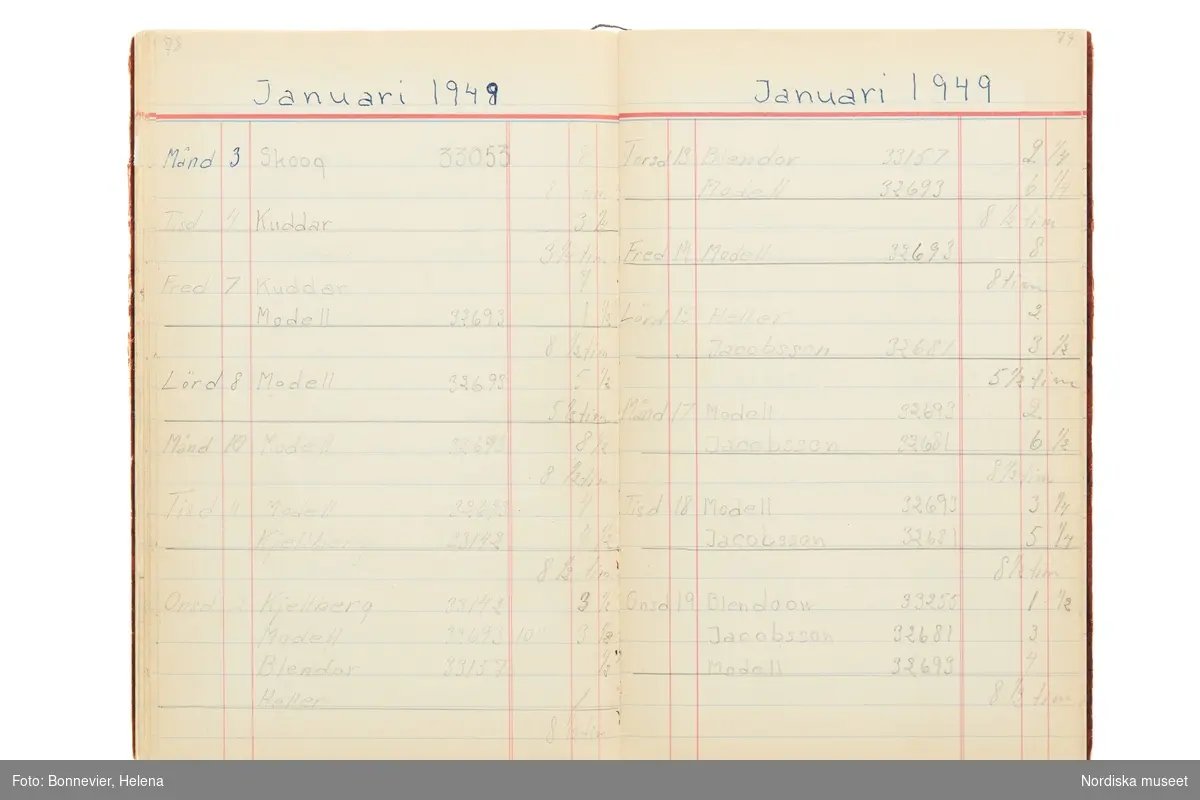 78
Januari 1949
Månd 3 Skoog 33053 8
8
Tisd 4 Kuddar 3 ½
3 ½ tim
Fred 7 Kuddar 7
Modell 32693 1 ½
8 ½ tim
Lörd 8 Modell 32693 5 ½
5 ½ tim
Månd 10 Modell 32693 8 ½
8 ½ tim
Tisd 11 Modell 32693
Kjellberg 33142 ½
8 ½ tim
Onsd Kjellberg 33142 3 ½
Modell 32693 3 ½
Blendar 33157 ½
Haller 1
8 ½ tim
79
Januari 1949
Torsd 13 Blendor 33157 2 ¼
Modell 32693 6 ¼
8 ½ tim
Fred 14 Modell 32693 8
8 tim
Lörd 15 Haller 2
Jacobsson 32681 3 ½
5 ½ tim
Månd 17 Modell 32693 2
Jacobsson 32681 6 ½
8 ½ tim
Tisd 18 Modell 32693 3 ¼
Jacobsson 32681 5 ¼
8 ½ tim
Onsd 19 Blendoow 33255 1 ½
Jacobsson 32681 3
Modell 32693 4
8 ½ tim
Foto: Bonnevier, Helena
Nordiska museet